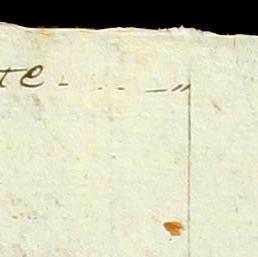 te - . . - - "